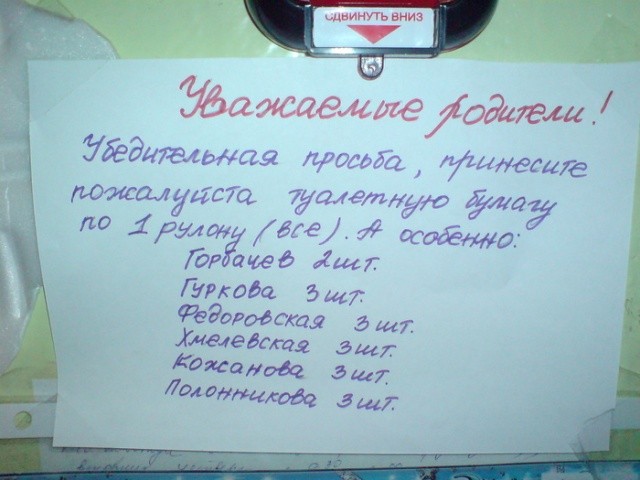 СДВИНУТЬ ВНИЗ
Уважаемые родители!
Убедительная просьба, принесите
пожалуйста туалетную бумагу
по 1 рулону (все). А особенно:
Горбачев 2 шт.
Гуркова 3 шт.
Федоровская 3 шт.
Хмелевская 3 шт.
Кожанова 3 шт.
Полонникова 3 шт.